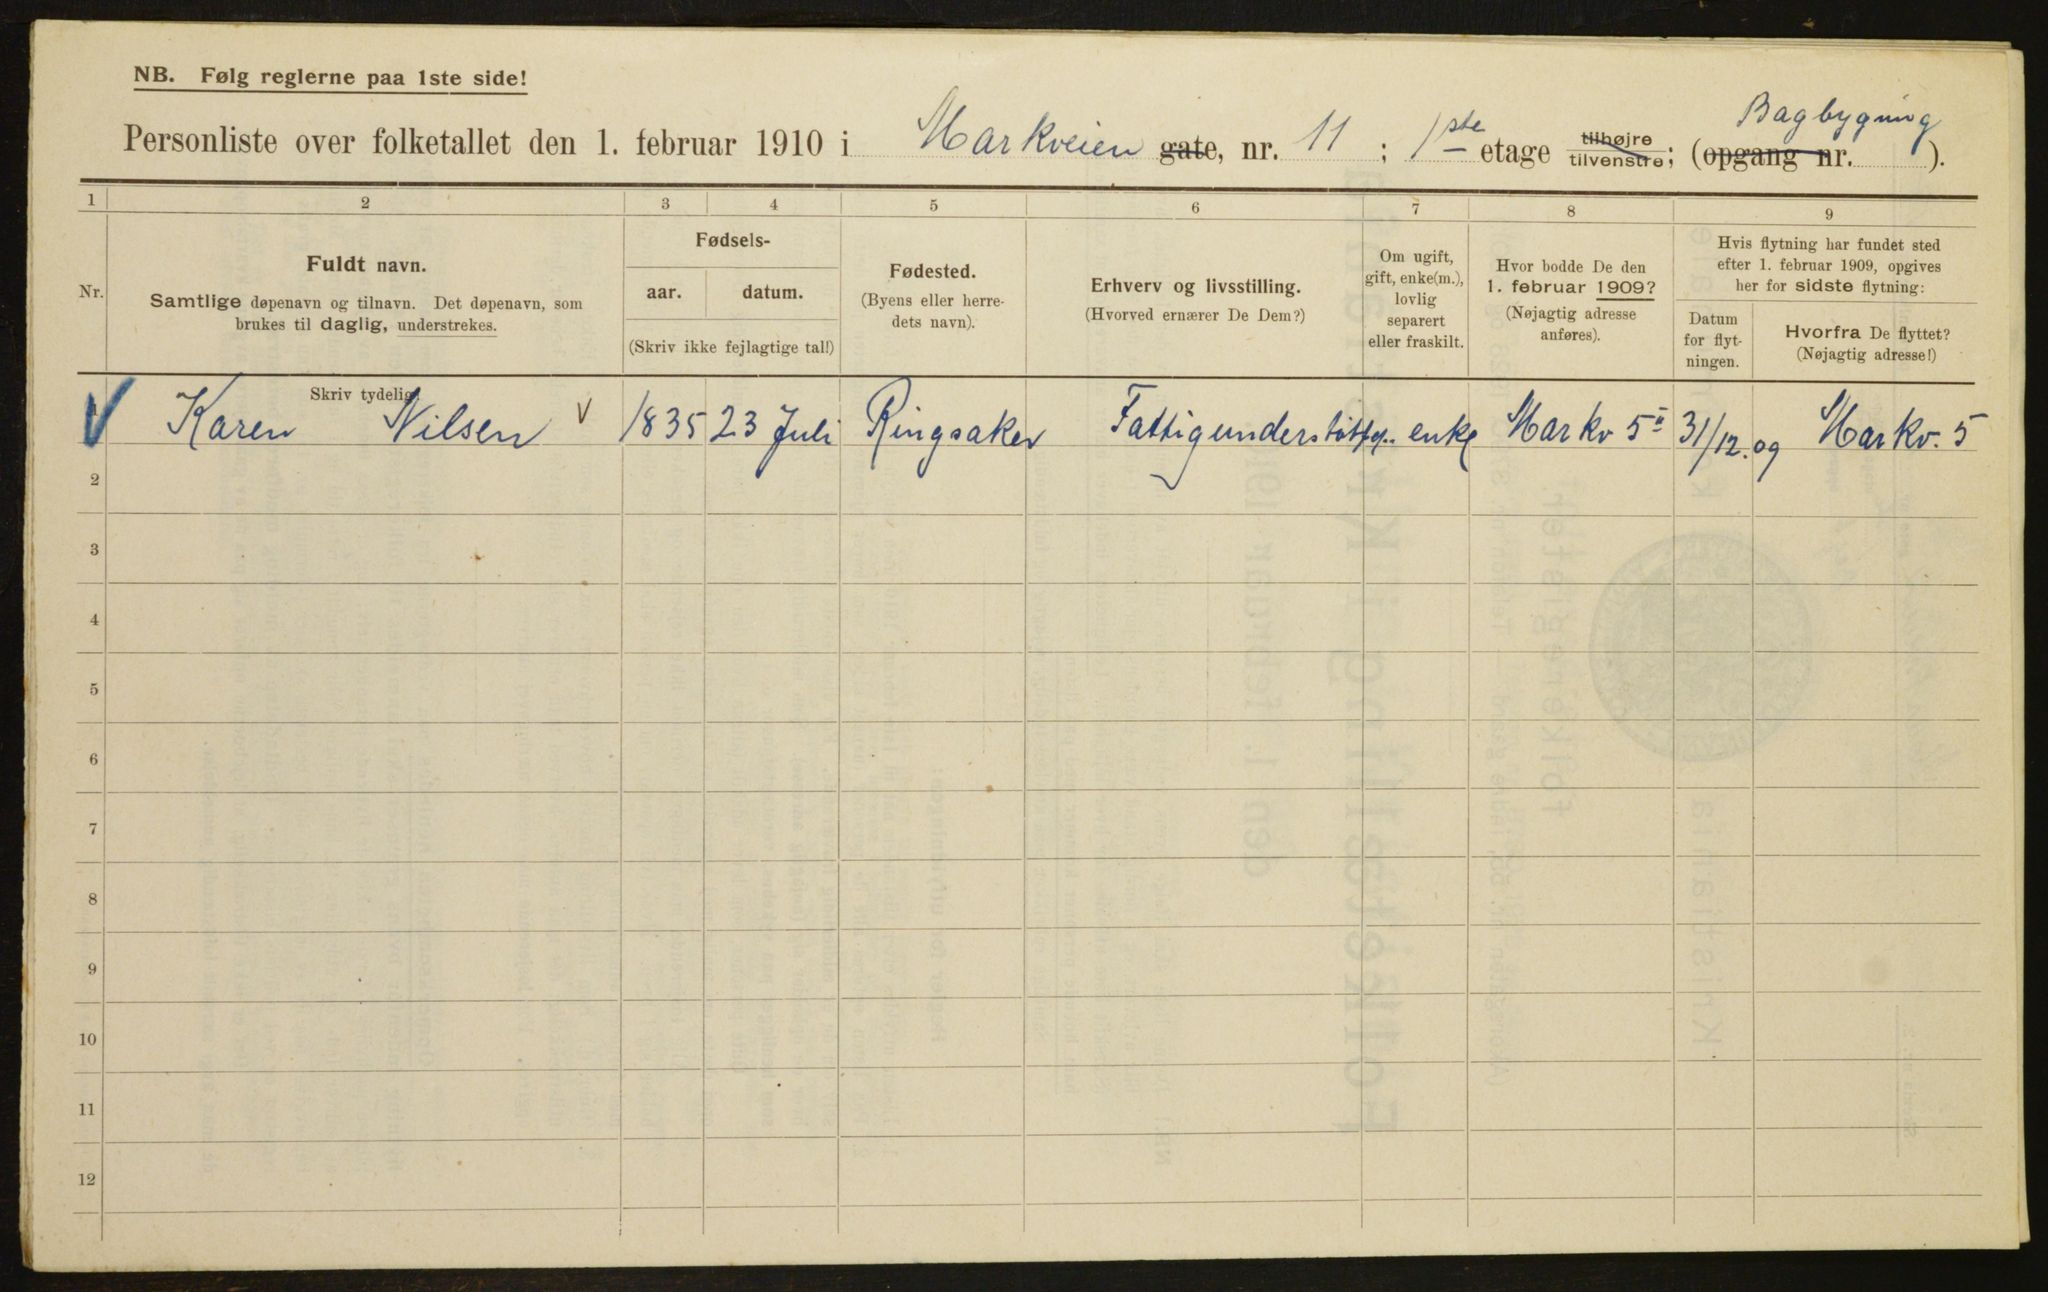 NB. Følg reglerne paa 1ste side!
Personliste over folketallet den 1. februar 1910 i Markveien gate, nr. 11 ; 1ste etage tilhøjre tilvenstre; (opgang nr. Bagbygning ).
1 2 3 4 5 6 7 8 9
Nr.
Fuldt navn.
Samtlige døpenavn og tilnavn. Det døpenavn, som
brukes til daglig, understrekes.
Fødsels-
aar. datum.
(Skriv ikke fejlagtige tal!)
Fødested.
(Byens eller herre-
dets navn).
Erhverv og livsstilling.
(Hvorved ernærer De Dem?)
Om ugift,
gift, enke(m.),
lovlig
separert
eller fraskilt.
Hvor bodde De den
1. februar 1909?
(Nøjagtig adresse
anføres).
Hvis flytning har fundet sted
efter 1. februar 1909, opgives
her for sidste flytning:
Datum
for flyt-
ningen.
Hvorfra De flyttet?
(Nøjagtig adresse!)
Skriv tydelig!
Karen Nilsen 1835 23 Juli Ringsaker enke Markv 5 II 31/12. 09 Markv. 5
2
3
4
5
6
7
8
9
10
11
12